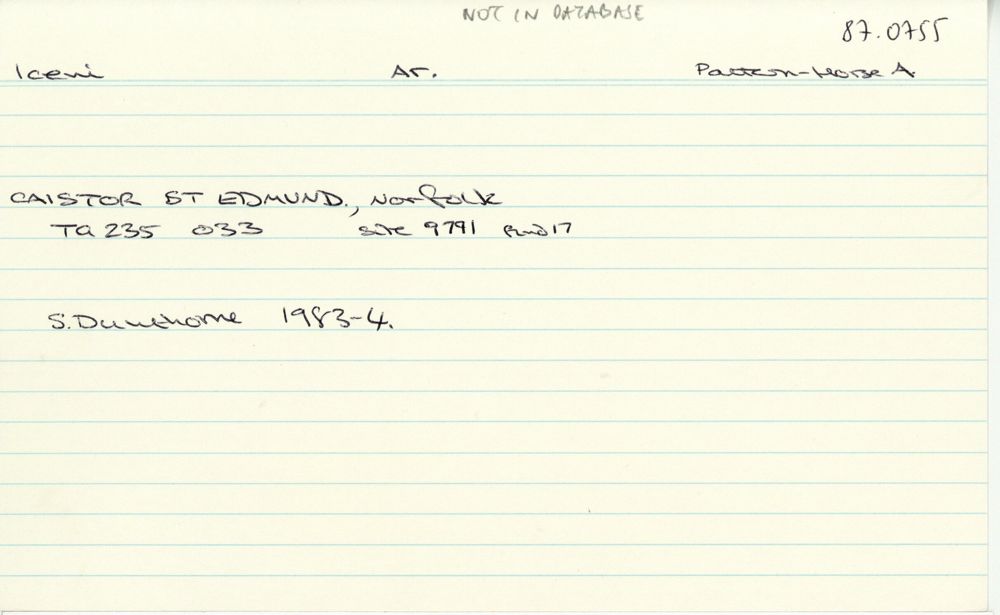 NOT IN DATABASE
87.0755
Iceni Ar. Pattern-Horse A
CAISTOR ST EDMUND, Norfolk
TG 235 033 site 9791 find 17
S. Dunthorne 1983-4.